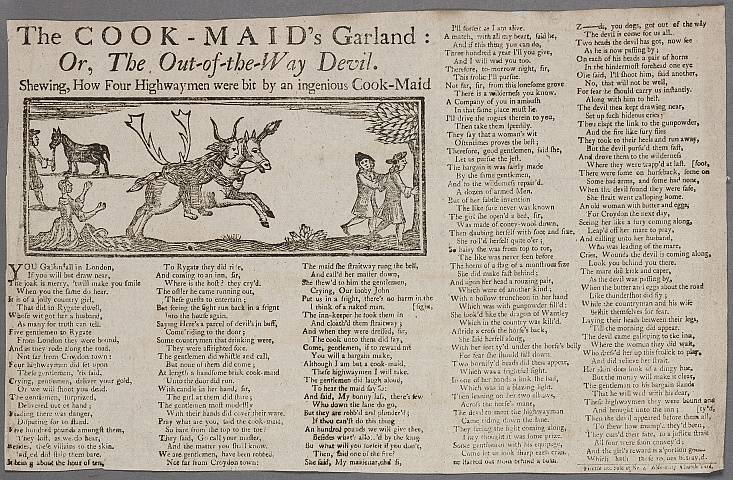 The COOK-MAID's Garland:
Or, The Out-of-the-Way Devil.
Shewing, How Four Highwaymen were bit by an ingenious Cook-Maid
YOU in London,
If you will but draw near,
The joak is merry, 'twill make you smile
When you the same do hear.
It is of a jolly country girl,
That did in Rygate dwell,
Whose wit got her a husband,
As many for truth can tell.
Five gentlemen to Rygate
From London they were bound,
And as they rode along the road,
Not far from Croydon town:
Four highwaymen did set upon
These gentlemen, 'tis said,
Crying, gentlemen, deliver your gold,
Or we will shoot you dead.
The gentlemen, surprized,
Deliver'd out of hand;
Finding there was danger,
Disputing for to stand.
Five hundred pounds amongst them,
They lost, as we do hear,
Besides, these villains to the skin,
did strip them bare.
It being about the hour of ten,
To Rygate they did ride,
And coming to an inn, sir,
Where is the host? they cry'd.
The ostler he came running out,
These guests to entertain;
But seeing the sight run back in a fright
Into the house again.
Saying Here's a parcel of devils in buff,
Come riding to the door;
Some countrymen that drinking were,
They were affrighted sore.
The gentlemen did whistle and call,
But none of them did come;
At length a handsome brisk cook-maid
Unto the door did run.
With candle in her hand, sir,
The girl at them did stare;
The gentlemen most modestly
With their hands did cover their ware.
Pray what are you, said the cook-maid,
So bare from the top to the toe?
They said, Go call your master,
And the matter you shall know.
We are gentlemen, have been robbed,
Not far from Croydon town:
The maid she straitway rung the bell,
And call'd her master down,
She shew'd to him the gentlemen,
Crying, Our looby John
Put us in a fright, there's no harm in the
I think of a naked man. [sight,
The inn-keeper he took them in
And cloath'd them straitway;
And when they were dressed, sir,
The cook unto them did say,
Come, gentlemen, if to reward me
You will a bargain make,
Although I am but a cook-maid,
These highwaymen I will take.
The gentlemen did laugh aloud,
To hear the maid say so:
And said, My bonny lass, there's few
Who down the lane do go,
But they are robb'd and plunder'd;
If thou can'st do this thing
An hundred pounds we will give thee,
Besides what's allow'd by the king
But what will you forfeit if you don't,
Then, said one of the five?
She said, My maidenhead, sir,
I'll forfeit as I am alive.
A match, with all my heart, said he,
And if this thing you can do,
Three hundred a year I'll you give,
And I will wed you too.
Therefore, to-morrow night, sir,
This frolic I'll pursue.
Not far, sir, from this lonesome grove
There is a wilderness you know.
A Company of you in ambush
In that same place must lie
I'll drive the rogues therein to you,
Then take them speedily.
They say that a woman's wit
Oftentimes proves the best;
Therefore, good gentlemen, said she,
Let us pursue the jest.
The bargain it was fairly made
By the same gentlemen,
And to the wilderness repair'd
A dozen of armed Men.
But of her subtle invention
The like sure never was known
The girl she open'd a bed, sir,
Was made of coney-wool down,
Then daubing herself with soot and size,
She roll'd herself quite o'er;
So hairy she was from top to toe,
The like was never seen before
The horns of a stag of a monstrous size
She did make fast behind;
And upon her head a rouzing pair,
Which were of another kind;
With a hollow truncheon in her hand
Which was with gunpowder fill'd;
She look'd like the dragon of Wantley
Which in the country was kill'd.
Astride a cross the horse's back,
She laid herself along,
With her feet ty'd under the horse's belly
For fear she should fall down
Two bounselly heads did then appear,
Which was a frightful sight.
In one of her hands a link she had,
Which was in a blazing light.
Then leaning on her two elbows,
Across the horse's mane,
The devil to meet the highwayman
Came riding down the lane.
They seeing the light coming along,
They thought it was some prize.
Some gentleman with his equipage,
Come let us look sharp each cries.
Z——ds, you dogs, get out of the way
The devil is come for us all.
Two heads the devil has got, now see
As he is now passing by;
On each of his heads a pair of horns
In the hindermost forehead one eye
One said, I'll shoot him, said another,
No, that will not be well,
For fear he should carry us instantly.
Along with him to hell.
The devil then kept drawing near,
Set up such hideous cries;
Then clapt the link to the gunpowder,
And the fire like fury flies
They took to their heels and run away,
But the devil pursu'd them fast,
And drove them to the wilderness
Where they were trapp'd at last. [foot,
There were some on horseback, some on
Some had arms, and some had none,
When the devil found they were safe,
She strait went galloping home.
An old woman with butter and eggs,
For Croydon the next day,
Seeing her like a fury coming along,
Leap'd off her mare to pray,
And calling unto her husband,
Who was leading of the mare,
Cries, Wounds the devil is coming along,
Look you behind you there.
The mare did kick and caper,
As the devil was passing by,
When the butter and eggs about the road
Like thunderbolt did fly;
While the countryman and his wife
themselves for fear.
Laying their heads between their legs,
'Till the morning did appear.
The devil came galloping to the inn,
Where the women they did wait,
Who dress'd her up this frolick to play,
And did relieve her strait.
Her skin does look of a dingy hue,
But the money will make it clear,
The gentleman to his bargain stands
That he will wed with his dear.
These highwaymen they were bound and
And brought unto the inn; [ty'd,
Then the devil it appeared before them all,
To shew how trump, they'd been,
They curs'd their fate, to a justice strait
All four were soon convey'd;
And the girl's reward is a portion
Which hath